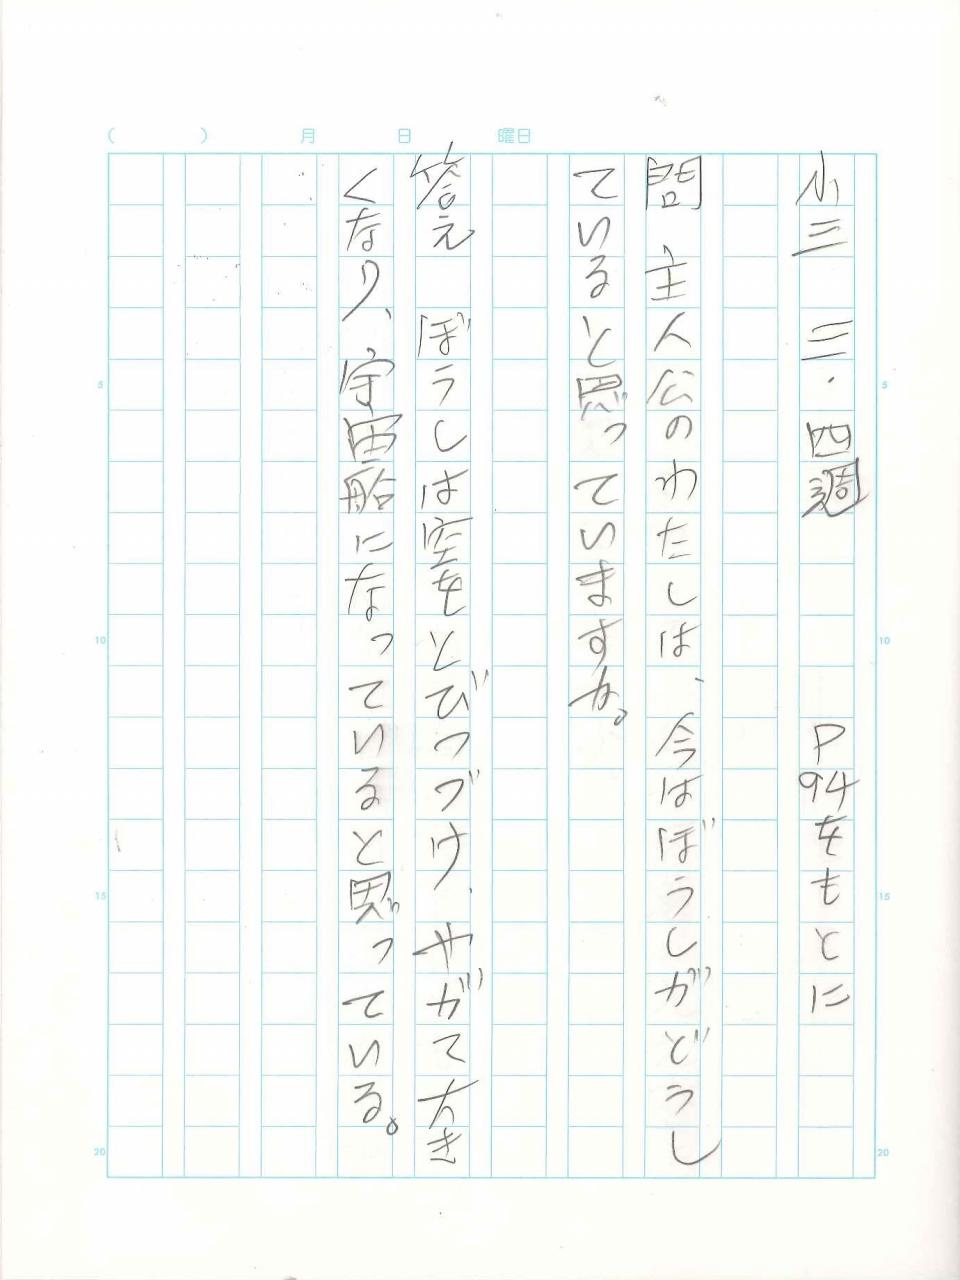 ( ) 月 日 曜日
小三 三・四週 P94をもとに
問 主人公のわたしは、今はぼうしがどうし
ていると思っていますか。
答え ぼうしは空をとびつづけ、やがて大き
くなり、宇宙船になっていると思っている。
5
10
15
20
5
10
15
20